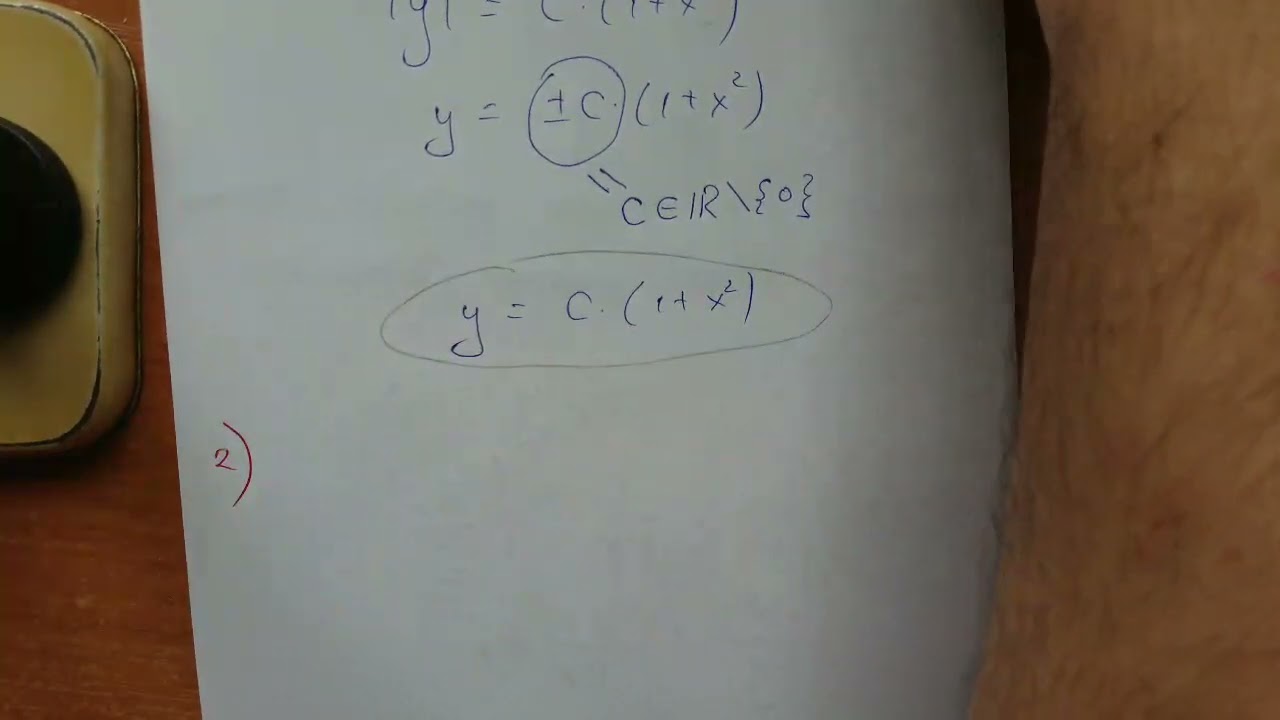 |y| = C·(1+x²)
y = ±C·(1+x²)
C∈ℝ\{0}
y = C·(1+x²)
2)